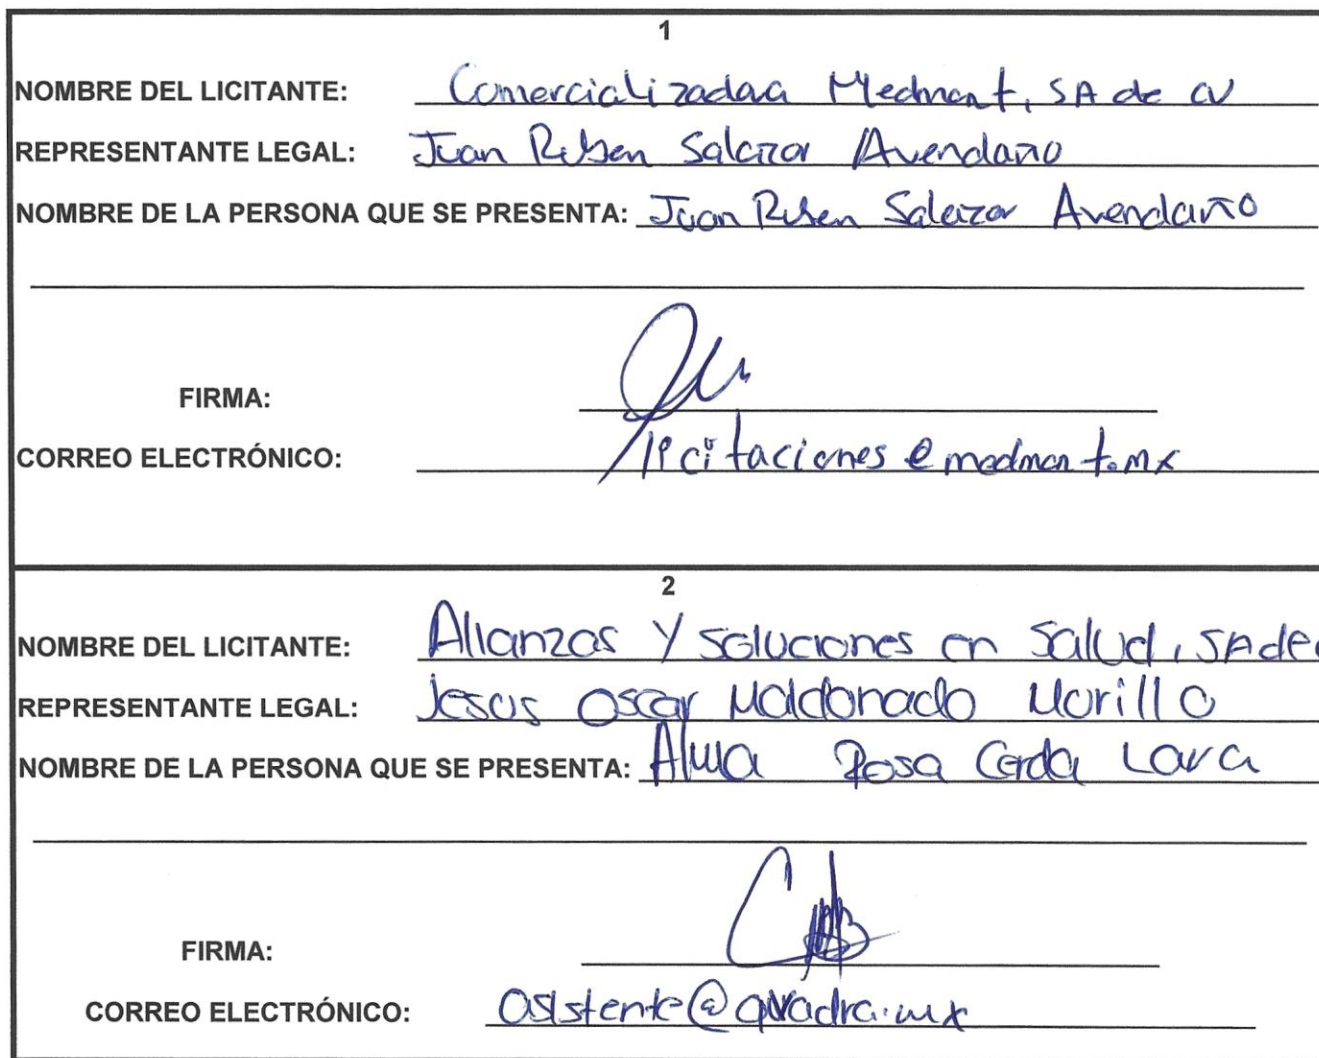 1
NOMBRE DEL LICITANTE: Comercializadaa Medmont, SA de CV
REPRESENTANTE LEGAL: Juan Ruben Salazar Avendaño
NOMBRE DE LA PERSONA QUE SE PRESENTA: Juan Ruben Salazar Avendaño
FIRMA:
CORREO ELECTRÓNICO: licitaciones@medmont.mx
2
NOMBRE DEL LICITANTE: Alianzas y soluciones en Salud, SA de
REPRESENTANTE LEGAL: Jesus Oscar Maldonado Morillo
NOMBRE DE LA PERSONA QUE SE PRESENTA: Alma Rosa Cerda Lara
FIRMA:
CORREO ELECTRÓNICO: asistente@